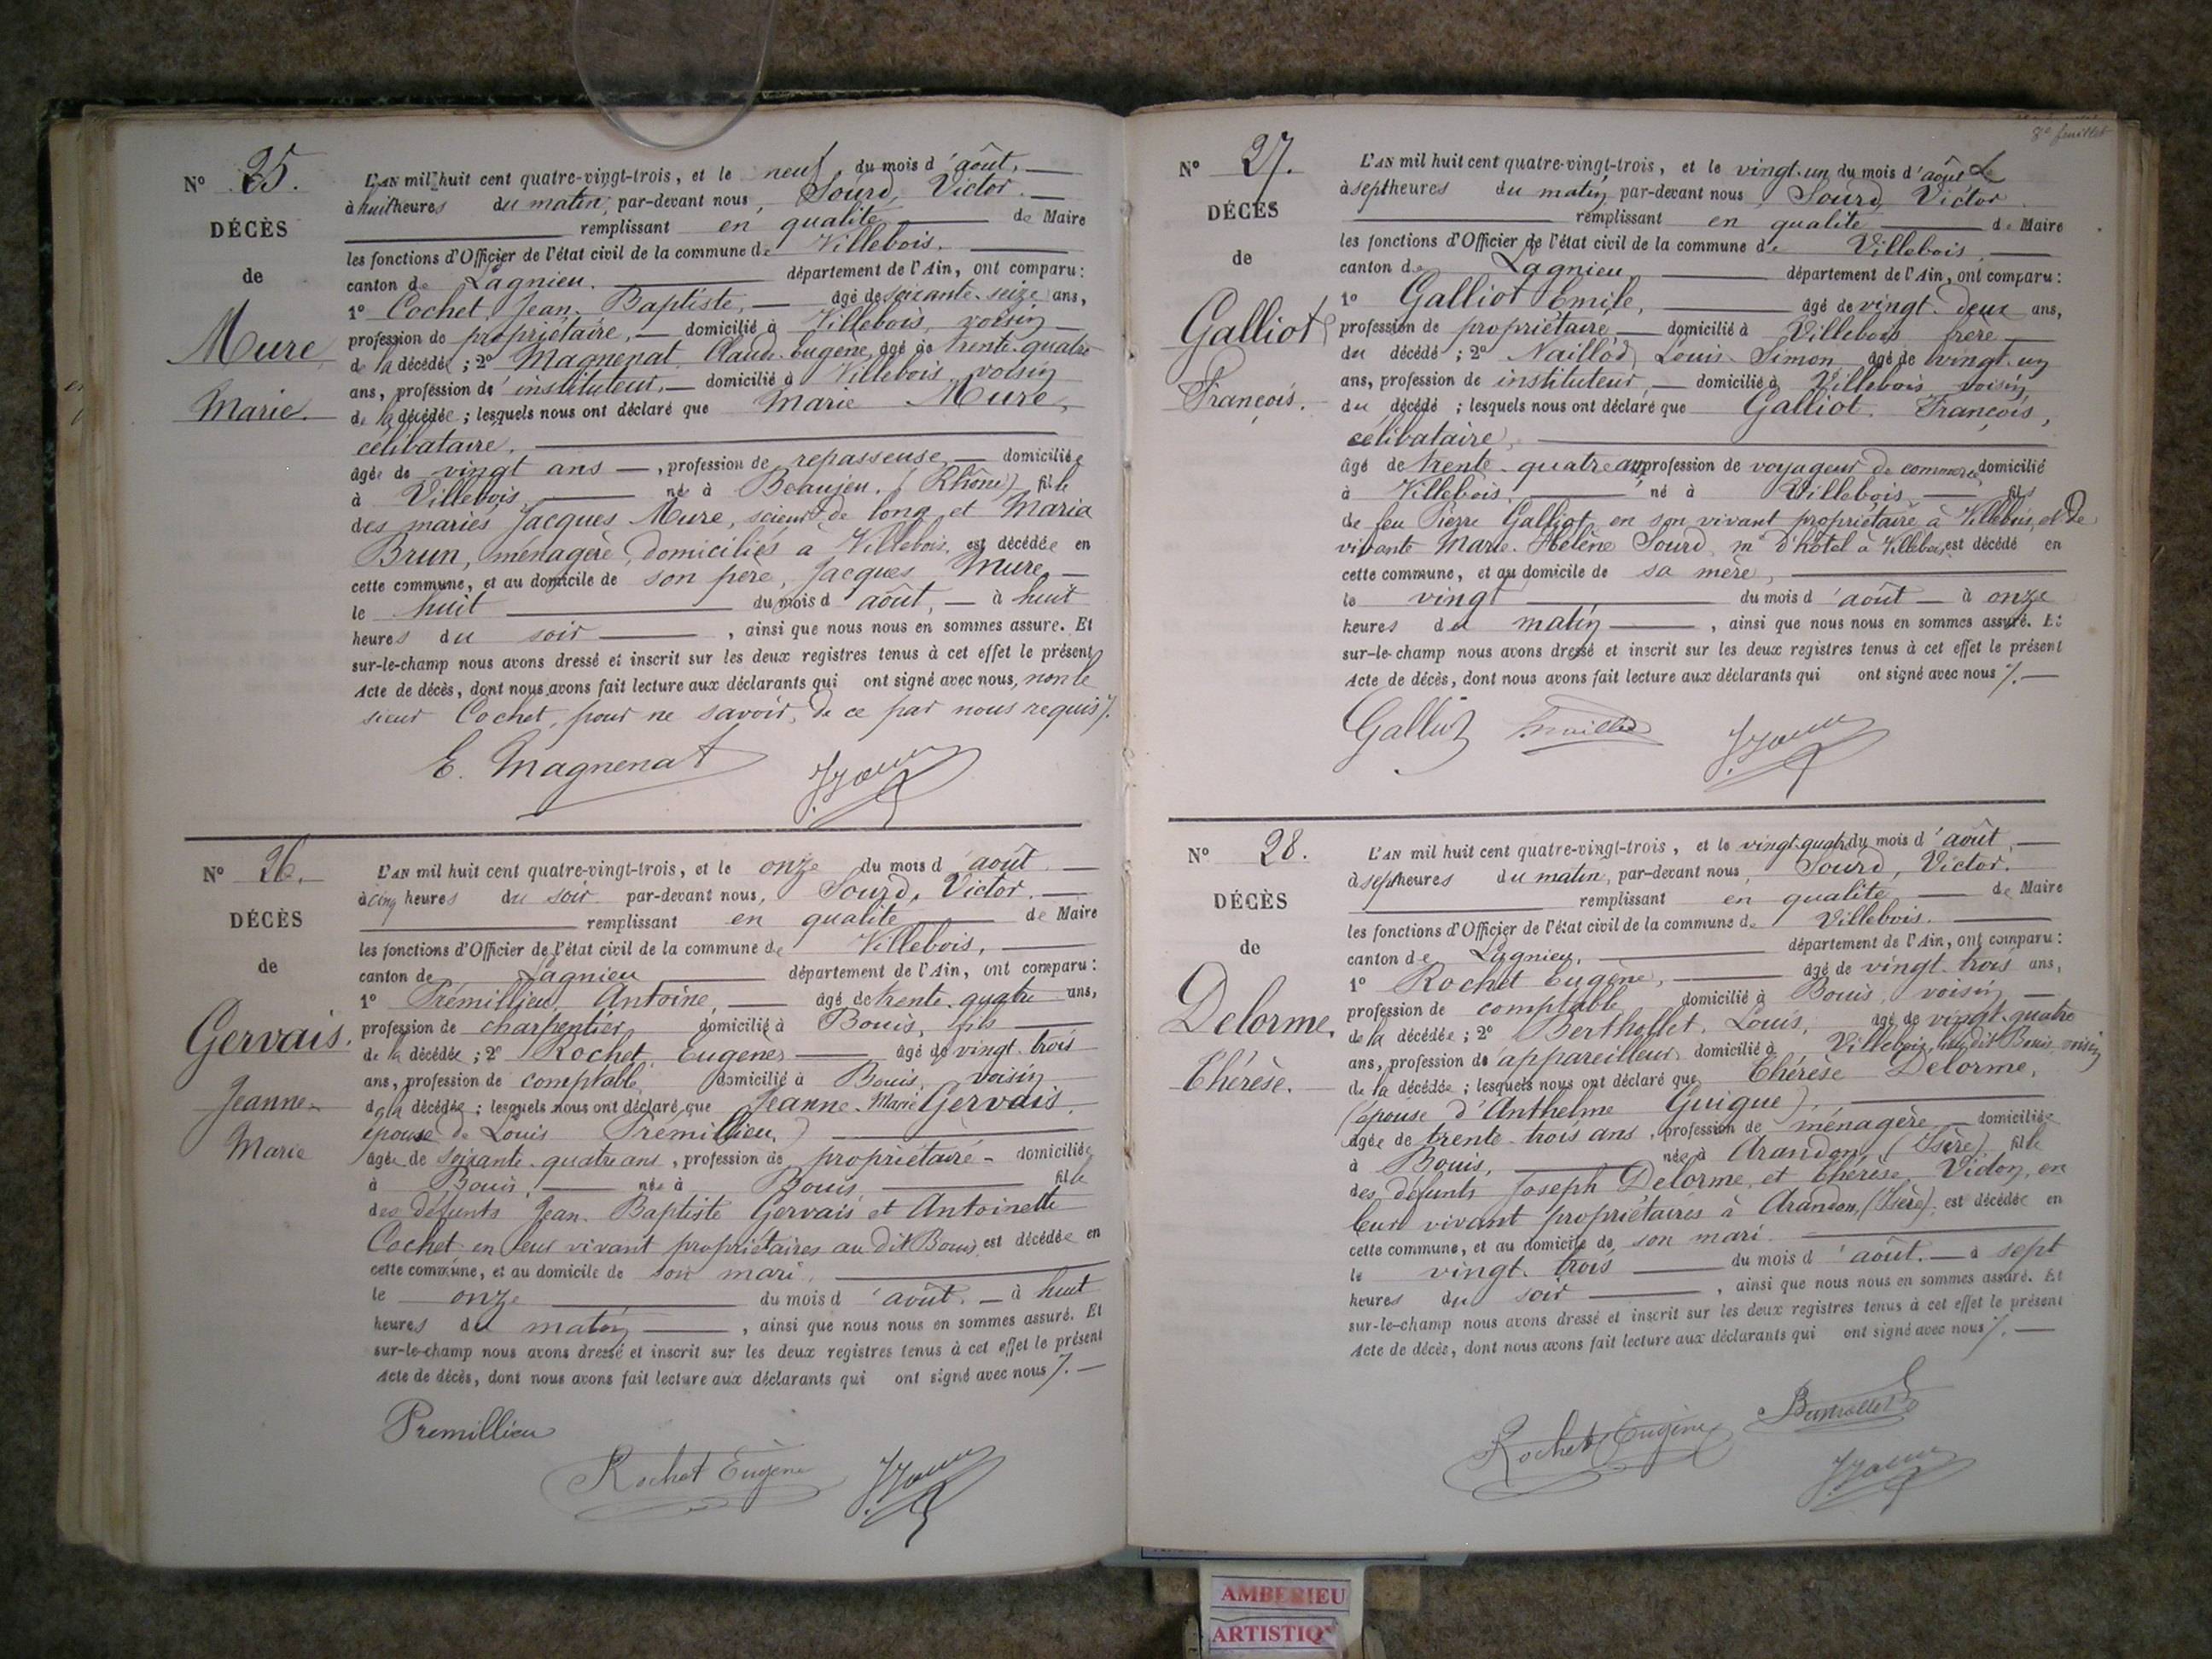 N° 25.
DÉCÈS
de
Mure
Marie.
L'AN mil huit cent quatre-vingt-trois, et le neuf, du mois d'août,
à huit heures du matin, par-devant nous, Sourd, Victor.
remplissant en qualité de Maire
les fonctions d'Officier de l'état civil de la commune de Villebois.
canton de Lagnieu. département de l'Ain, ont comparu:
1° Cochet, Jean, Baptiste, âgé de soixante-seize ans,
profession de propriétaire, domicilié à Villebois, voisin
de la décédée; 2° Magnenat Claude-Eugène, âgé de trente-quatre
ans, profession de instituteur, domicilié à Villebois, voisin
de la décédée; lesquels nous ont déclaré que Marie Mure,
célibataire,
âgée de vingt ans, profession de repasseuse domiciliée
à Villebois, née à Beaujeu. (Rhône) fille
des mariés Jacques Mure, scieur de long et Maria
Brun, ménagère, domiciliés à Villebois, est décédée en
cette commune, et au domicile de son père, Jacques Mure
le huit du mois d'août, à huit
heures du soir, ainsi que nous nous en sommes assuré. Et
sur-le-champ nous avons dressé et inscrit sur les deux registres tenus à cet effet le présent
Acte de décès, dont nous avons fait lecture aux déclarants qui ont signé avec nous, non le
sieur Cochet, pour ne savoir, de ce par nous requis.
E. Magnenat
N° 26.
DÉCÈS
de
Gervais.
Jeanne-
Marie
L'AN mil huit cent quatre-vingt-trois, et le onze du mois d'août
à cinq heures du soir par-devant nous, Sourd, Victor.
remplissant en qualité de Maire
les fonctions d'Officier de l'état civil de la commune de Villebois,
canton de Lagnieu département de l'Ain, ont comparu:
1° Prémillieu, Antoine, âgé de trente-quatre ans,
profession de charpentier domicilié à Bouis, fils
de la décédée; 2° Rochet, Eugène, âgé de vingt-trois
ans, profession de comptable, domicilié à Bouis, voisin
de la décédée; lesquels nous ont déclaré que Jeanne-Marie Gervais,
épouse de Louis Prémillieu,)
âgée de soixante-quatre ans, profession de propriétaire - domiciliée
à Bouis, née à Bouis, fille
des défunts Jean-Baptiste Gervais et Antoinette
Cochet, en leur vivant propriétaires au dit Bouis, est décédée en
cette commune, et au domicile de son mari,
le onze du mois d'août. à huit
heures du matin, ainsi que nous nous en sommes assuré. Et
sur-le-champ nous avons dressé et inscrit sur les deux registres tenus à cet effet le présent
Acte de décès, dont nous avons fait lecture aux déclarants qui ont signé avec nous
Premillieu
Rochet Eugène
8e feuillet
N° 27.
DÉCÈS
de
Galliot
François.
L'AN mil huit cent quatre-vingt-trois, et le vingt-un du mois d'août
à sept heures du matin par-devant nous, Sourd, Victor
remplissant en qualité de Maire
les fonctions d'Officier de l'état civil de la commune de Villebois,
canton de Lagnieu département de l'Ain, ont comparu:
1° Galliot Emile, âgé de vingt-deux ans,
profession de propriétaire domicilié à Villebois frère
du décédé; 2° Naillod, Louis-Simon, âgé de vingt-un
ans, profession de instituteur, domicilié à Villebois voisin
du décédé; lesquels nous ont déclaré que Galliot. François,
célibataire,
âgé de trente-quatre ans, profession de voyageur de commerce, domicilié
à Villebois, né à Villebois fils
de feu Pierre Galliot en son vivant propriétaire à Villebois, et de
vivante Marie-Hélène Sourd, md d'hôtel à Villebois, est décédé en
cette commune, et au domicile de sa mère,
le vingt du mois d'août à onze
heures du matin, ainsi que nous nous en sommes assuré. Et
sur-le-champ nous avons dressé et inscrit sur les deux registres tenus à cet effet le présent
Acte de décès, dont nous avons fait lecture aux déclarants qui ont signé avec nous
Galliot
N° 28.
DÉCÈS
de
Delorme,
Thérèse.
L'AN mil huit cent quatre-vingt-trois, et le vingt-quatre du mois d'août,
à sept heures du matin, par-devant nous, Sourd, Victor.
remplissant en qualité de Maire
les fonctions d'Officier de l'état civil de la commune de Villebois.
canton de Lagnieu, département de l'Ain, ont comparu:
1° Rochet Eugène, âgé de vingt-trois ans,
profession de comptable domicilié à Bouis, voisin
de la décédée; 2° Berthollet, Louis, âgé de vingt-quatre
ans, profession de appareilleur domicilié à Villebois, lieu dit Bouis, voisin
de la décédée; lesquels nous ont déclaré que Thérèse Delorme,
(épouse d'Anthelme Guigue),
âgée de trente-trois ans, profession de ménagère domiciliée
à Bouis, née à Arandon, (Isère) fille
des défunts Joseph Delorme, et Thérèse Vidon, en
leur vivant propriétaires à Arandon, (Isère), est décédée en
cette commune, et au domicile de son mari.
le vingt-trois du mois d'août. à sept
heures du soir, ainsi que nous nous en sommes assuré. Et
sur-le-champ nous avons dressé et inscrit sur les deux registres tenus à cet effet le présent
Acte de décès, dont nous avons fait lecture aux déclarants qui ont signé avec nous
Rochet Eugène
Berthollet
AMBERIEU
ARTISTIQ